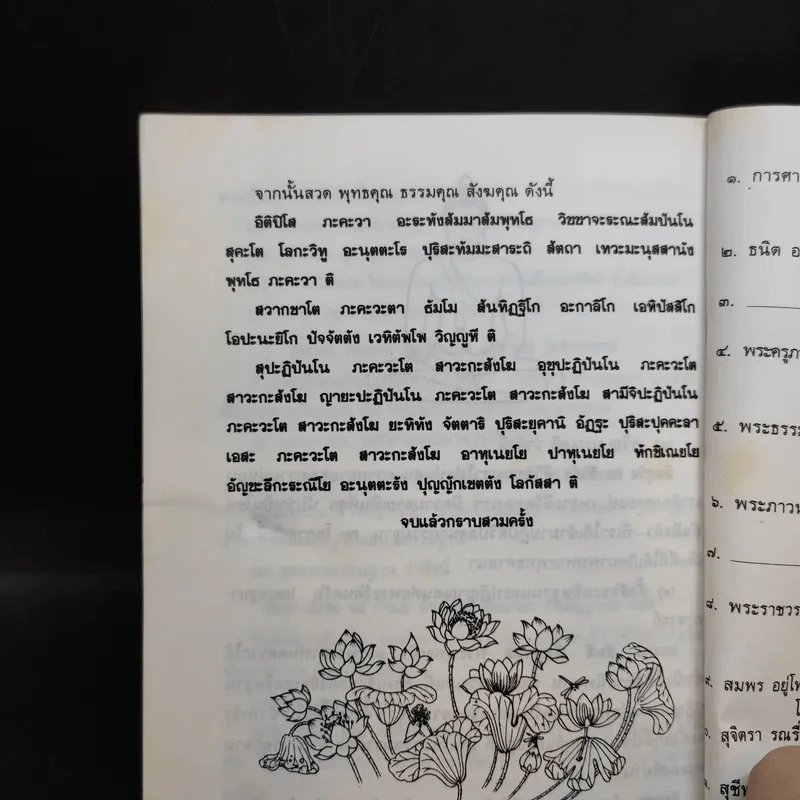 จากนั้นสวด พุทธคุณ ธรรมคุณ สังฆคุณ ดังนี้
อิติปิโส ภะคะวา อะระหังสัมมาสัมพุทโธ วิชชาจะระณะสัมปันโน
สุคะโต โลกะวิทู อะนุตตะโร ปุริสะทัมมะสาระถิ สัตถา เทวะมะนุสสานัง
พุทโธ ภะคะวา ติ
สวากขาโต ภะคะวะตา ธัมโม สันทิฏฐิโก อะกาลิโก เอหิปัสสิโก
โอปะนะยิโก ปัจจัตตัง เวทิตัพโพ วิญญูหิ ติ
สุปะฏิปันโน ภะคะวะโต สาวะกะสังโฆ อุชุปะฏิปันโน ภะคะวะโต
สาวะกะสังโฆ ญายะปะฏิปันโน ภะคะวะโต สาวะกะสังโฆ สามีจิปะฏิปันโน
ภะคะวะโต สาวะกะสังโฆ ยะทิทัง จัตตาริ ปุริสะยุคานิ อัฏฐะ ปุริสะปุคคะลา
เอสะ ภะคะวะโต สาวะกะสังโฆ อาหุเนยโย ปาหุเนยโย ทักขิเณยโย
อัญชะลีกะระณีโย อะนุตตะรัง ปุญญักเขตตัง โลกัสสา ติ
จบแล้วกราบสามครั้ง
๑. การศา
๒. ธนิต อ
๓.
๔. พระครูภา
๕. พระธรรม
๖. พระภาวน
๗.
๘. พระราชวร
๙. สมพร อยู่โพ
สุจิตรา รณรื่
สุชีพ